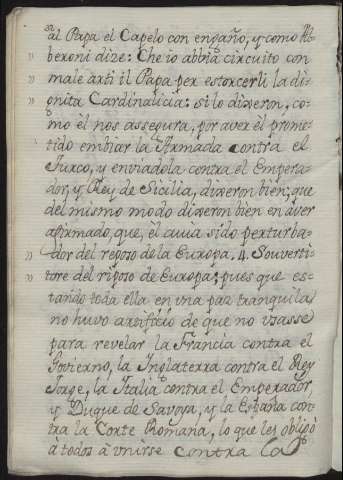 al Papa el Capelo con engaño, y como Al
beroni dize: Che io abbia circuito con
male arti il Papa per estorcerli la di
gnita Cardinalicia: si lo dixeron, co
mo èl nos assegura, por aver èl prome
tido embiar la Armada contra el
Turco, y enviadola contra el Empera
dor, y Rey de Sicilia, dixeron bien; que
del mismo modo dixeron bien en aver
afirmado, que, èl avia sido perturba
dor del reposo de la Europa. 4. Souverti
tore del riposo de Europa; pues que es
tando toda ella en vna paz tranquila,
no huvo artificio de que no vsasse
para revelar la Francia contra el
Govierno, la Inglaterra contra el Rey
Jorge, la Italia contra el Emperador,
y Duque de Savoya, y la España con
tra la Corte Romana, lo que les obligò
à todos à vnirse contra la